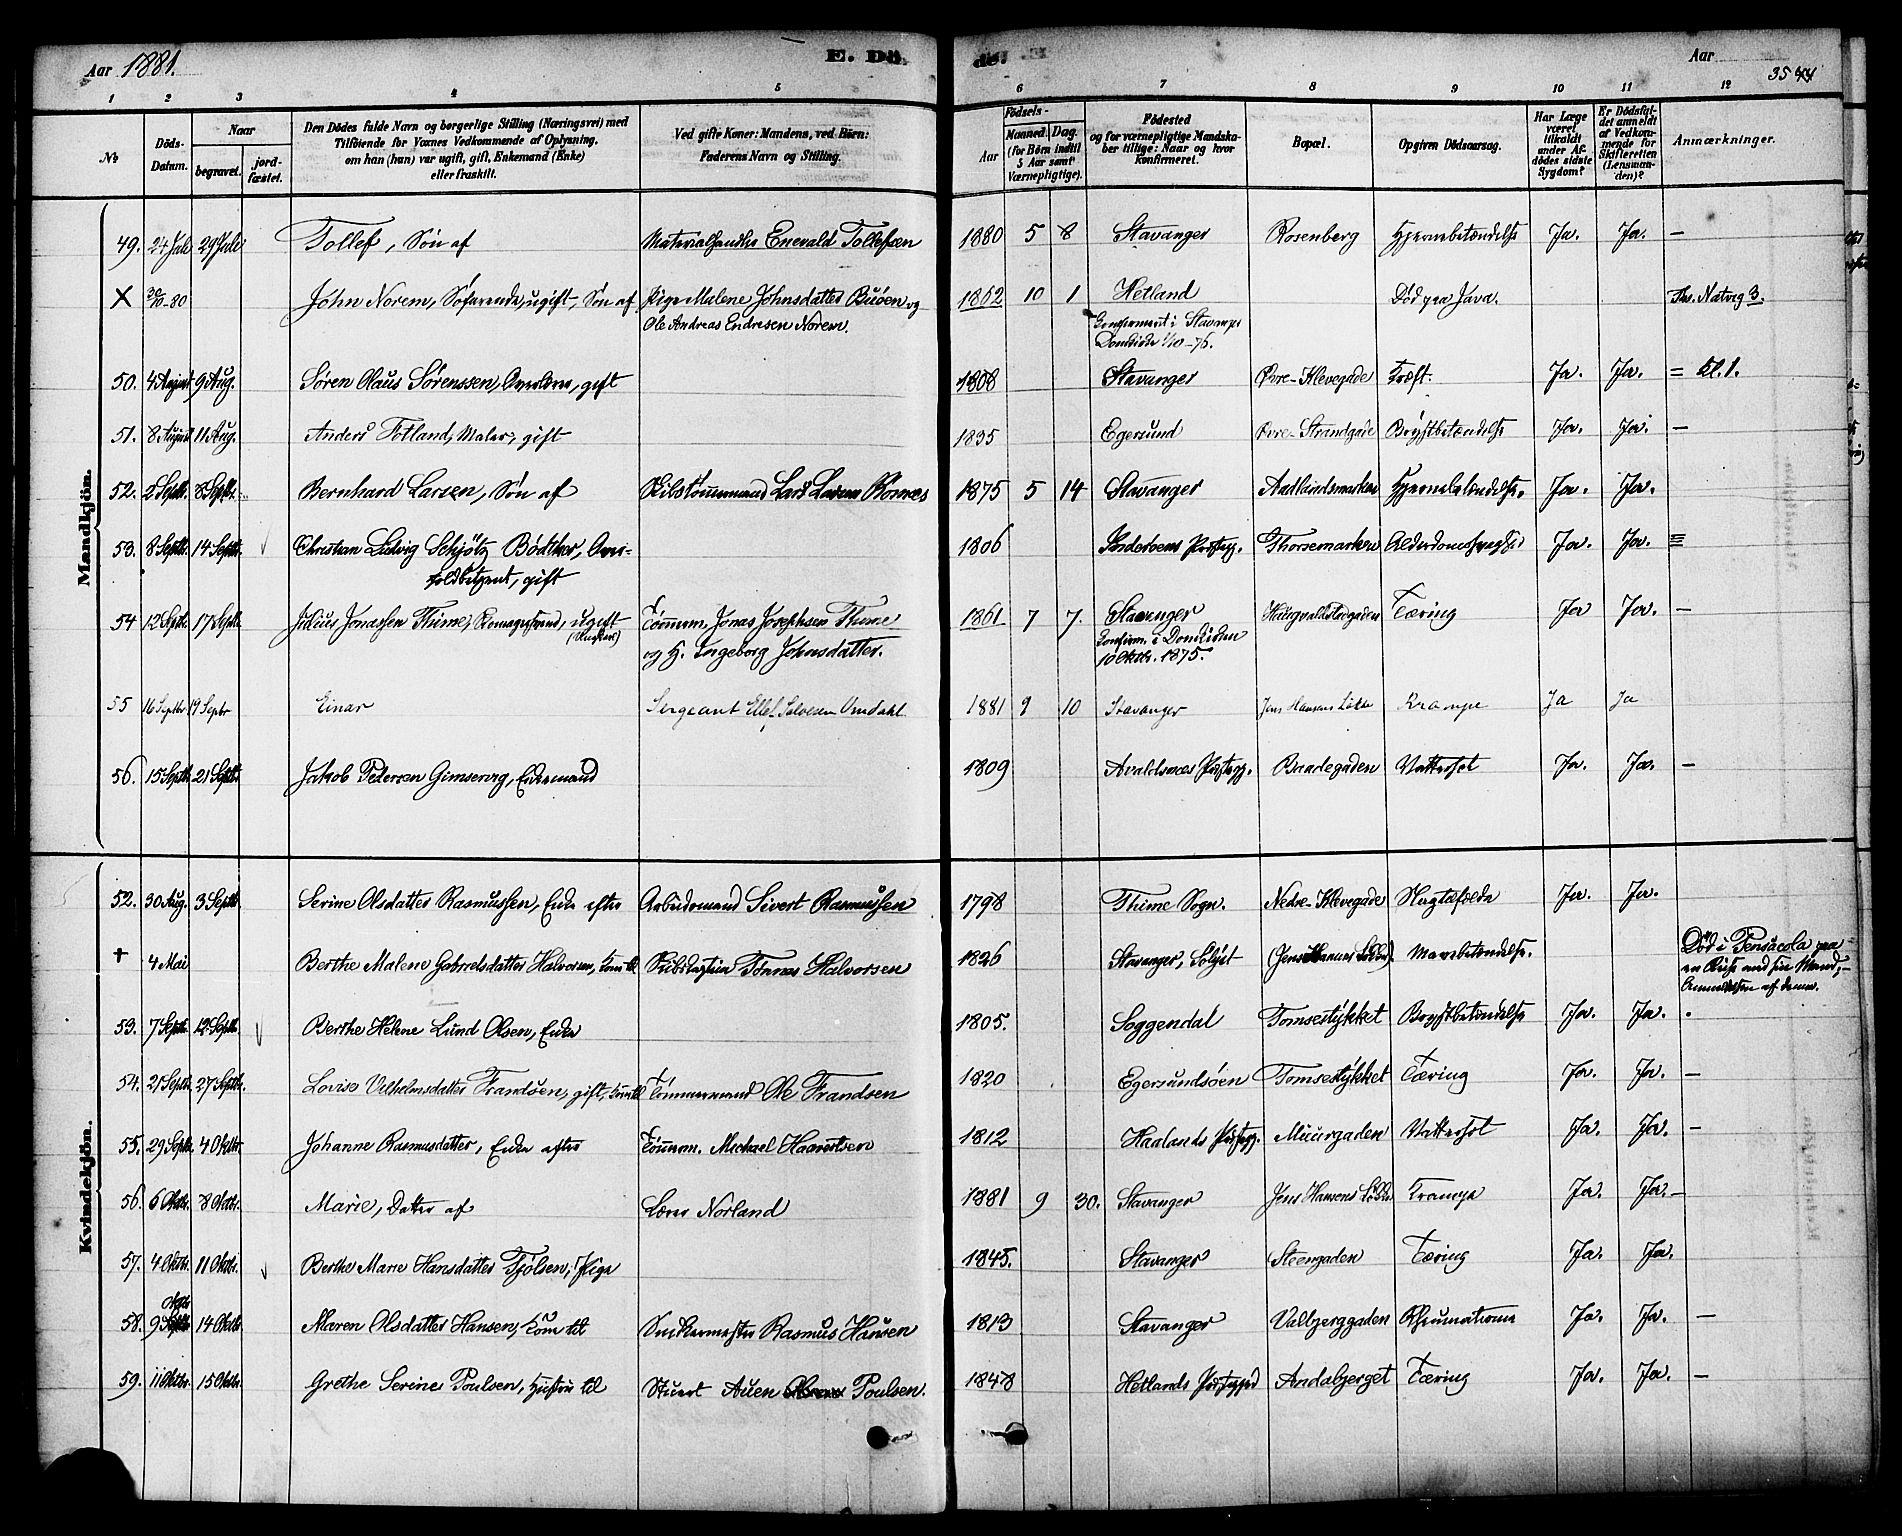 Aar 1881. E. Dö de. Aar
35 44
1 2 3 4 5 6 7 8 9 10 11 12
No
Döds-Datum.
Naar
begravet.
jord-fæstet.
Den Dödes fulde Navn og borgerlige Stilling (Næringsvei) med
Tilföiende for Voxnes Vedkommende af Oplysning,
om han (hun) var ugift, gift, Enkemand (Enke)
eller fraskilt.
Ved gifte Koner: Mandens, ved Börn:
Faderens Navn og Stilling.
Födsels-
Aar
Maaned. Dag.
(for Börn indtil
5 Aar samt
Værnepligtige).
Födested
og for værnepligtige Mandska-
ber tillige: Naar og hvor
konfirmeret.
Bopæl.
Opgiven Dödsaarsag.
Har Læge
været
tilkaldt
under Af-
dödes sidste
Sygdom?
Er Dödsfal-
det anmeldt
af Vedkom-
mende for
Skifteretten
(Lensman-
den)?
Anmærkninger.
Mandkjön.
49. 24 Juli 29 Juli Tollef, Søn af Materialhandler Enevald Tollefsen 1880 5 8 Stavanger Rosenberg Hjernebetændelse Ja. Ja. —
X 30/10-80 John Norem, Søfarende, ugift, Søn af Pige Malene Johnsdatter Buøen og 1862 10 1 Hetland Død paa Java. Ths. Natvig 3.
Ole Andreas Endresen Norem. Konfirmeret i Stavanger
Domkirke 1/10-76.
50. 4 August 9 Aug. Søren Olaus Sørenssen, gift 1808 Stavanger Øvre-Klevegade Kræft. Ja. Ja. = Kl. 1.
51. 8 August 11 Aug. Anders Totland, Maler, gift 1835 Egersund Øvre-Strandgade Brystbetændelse Ja. Ja. —
52. 2 Septb. 8 Septb. Bernhard Larsen, Søn af Skibstømmermand Lars Larsen 1875 5 14 Stavanger Aadlandsmarken Hjernebetændelse. Ja. Ja.
53. 8 Septb. 14 Septb. Christian Ludvig Schjøtz Bødtker, 1806 Prestegj. Thorsemarken Alderdomssvaghed Ja. Ja.
gift
54 12 Septb. 17 Septb. Julius Jonassen Thime, ugift Tømmerm. Jonas Josephsen Thime 1861 7 7. Stavanger Haugvaldstadgaden Tæring Ja Ja. —
og H. Ingeborg Johnsdatter. Konfirm. i Domkirken
10 Oktbr. 1875.
55 16 Septbr 19 Septbr Einar Sergeant Ellef Salvesen Umdahl 1881 9 10 Stavanger Jens Hansens Løkke Krampe Ja Ja
56. 15 Septb. 21 Septb. Jakob Pedersen Gimservig, Enkemand 1809 Avaldsnæs Prestegj. Baadegaden Vattersot Ja. Ja. —
Kvindekjön.
52. 30 Aug. 3 Septb. Serine Olsdatter Rasmussen, Enke efter Arbeidsmand Sivert Rasmussen 1798 Thime Sogn. Nedre-Klevegade Ja. Ja.
+ 4 Mai Berthe Malene Gabrielsdatter Halvorsen, Kone til Skibskaptein Tønnes Halvorsen 1826 Stavanger, (Jens Hansens Løkke). Mavebetændelse. Død i Pensacola paa
en Reise med sin Mand;
Anmeldelsen af denne.
53. 7 Septb. 12 Septb. Berthe Helene Lund Olsen, Enke 1805. Soggendal Tomsestykket Brystbetændelse Ja. Ja.
54. 21 Septb. 27 Septb. Lovise Vilhelmsdatter Frandsen, gift, Kone til Tømmermand Ole Frandsen 1820 Egersundsøen Tomsestykket Tæring Ja. Ja. —
55. 29 Septb. 4 Oktbr. Johanne Rasmusdatter, Enke efter Tømmerm. Michael Haavertsen 1812 Haalands Prestegj. Muurgaden Vattersot Ja. Ja. —
56. 6 Oktbr. 8 Oktbr. Marie, Datter af Lærer Norland 1881 9 30. Stavanger Jens Hansens Løkke Krampe Ja. Ja. —
57. 4 Oktbr. 11 Oktbr. Berthe Marie Hansdatter Fjølsen, Pige 1845. Stavanger Steengaden Tæring Ja. Ja.
58. 9 Oktbr 14 Oktbr. Maren Olsdatter Hansen, Kone til Snekkermester Rasmus Hansen 1813 Stavanger Valbjerggaden Rheumatisme Ja. Ja. —
59. 11 Oktbr. 15 Oktbr. Grethe Serine Poulsen, Hustru til Stuert Auen Poulsen. 1848 Hetlands Prestegjeld Andabjerget Tæring Ja. Ja. —